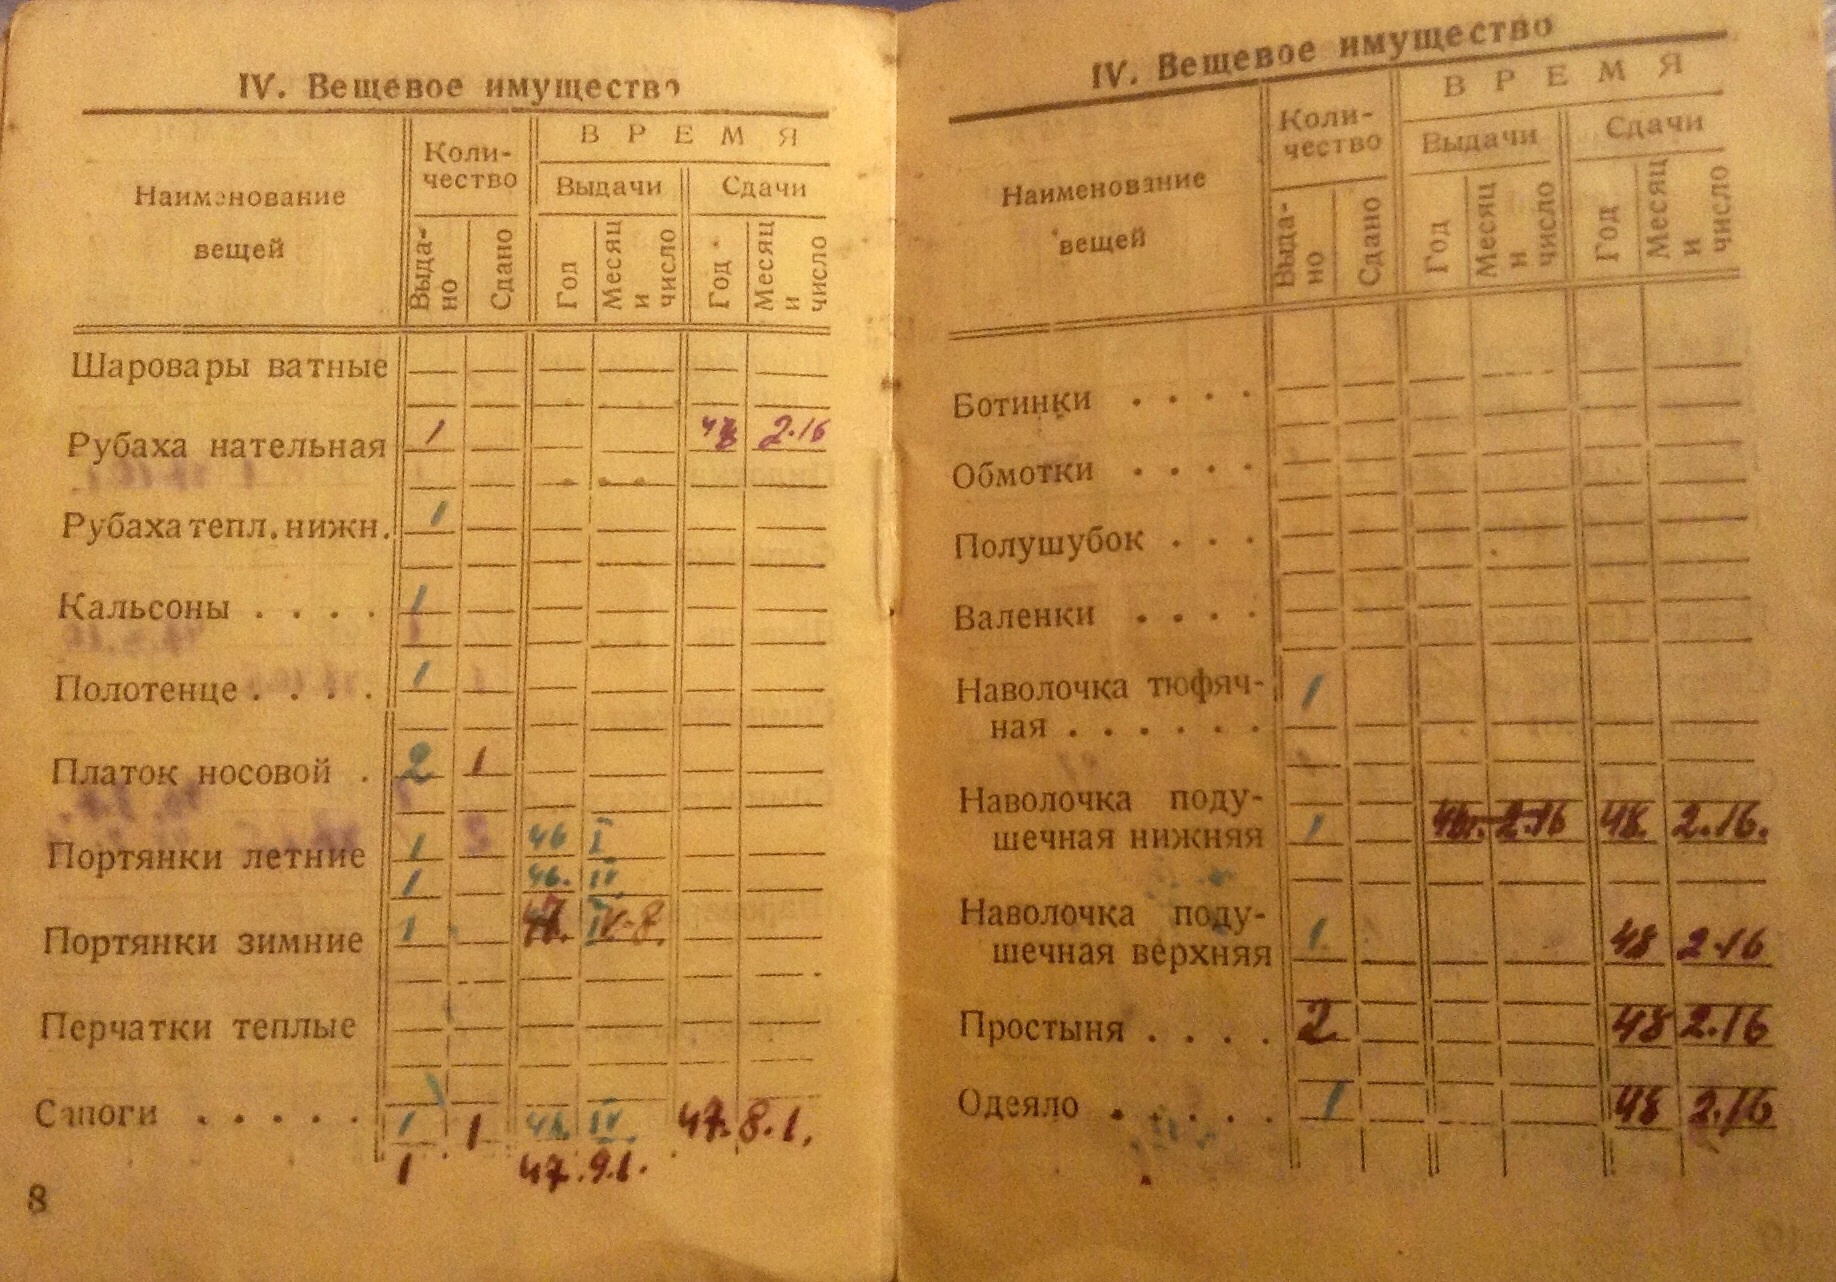 IV. Вещевое имущество
Наименование вещей
Коли-
чество
В Р Е М Я
Выдачи
Сдачи
Выда-
но
Сдано
Год
Месяц
и
число
Год
Месяц
и
число
Шаровары ватные
Рубаха нательная 1 48 2.16
Рубаха тепл. нижн. 1
Кальсоны . . . . 1
Полотенце . . . . 1
Платок носовой . 2 1
Портянки летние 1 2 46 I
1 46. IV
Портянки зимние 1 47. IV-8.
Перчатки теплые
Сапоги . . . . . 1 1 46. IV 47. 8.1.
1 47. 9.1.
8
IV. Вещевое имущество
Наименование
вещей
Коли-
чество
В Р Е М Я
Выдачи
Сдачи
Выда-
но
Сдано
Год
Месяц
и
число
Год
Месяц
и
число
Ботинки . . . .
Обмотки . . . .
Полушубок . . .
Валенки . . . .
Наволочка тюфяч- 1
ная . . . . . .
Наволочка поду-
шечная нижняя 1 48. 2.16 48. 2.16.
Наволочка поду-
шечная верхняя 1 48 2.16
Простыня . . . . 2 48 2.16
Одеяло . . . . . 1 48 2.16